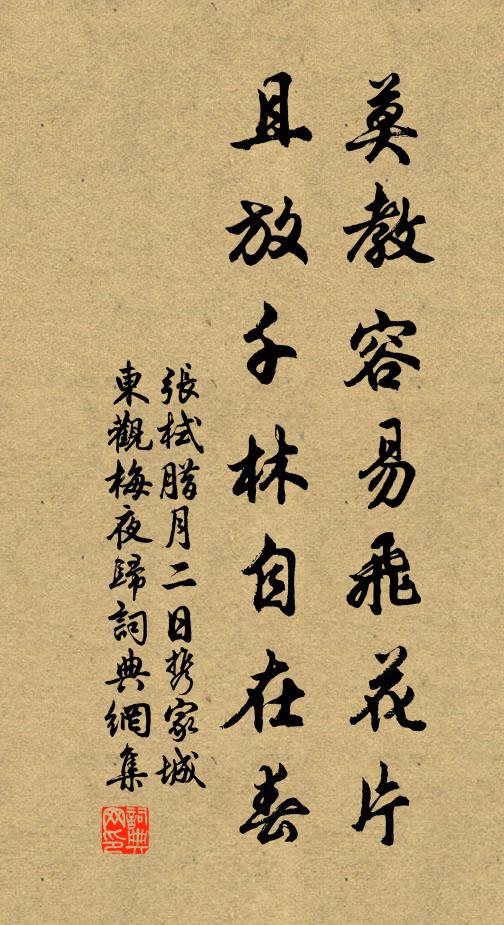 莫教容易飛花片
且放千林自在春
張栻腊月二日携家城
東觀梅夜歸詞典網集
詞典
网印